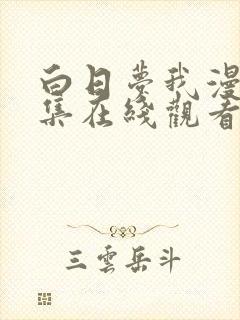 白日夢我漫
集在綫觀看
三雲岳斗